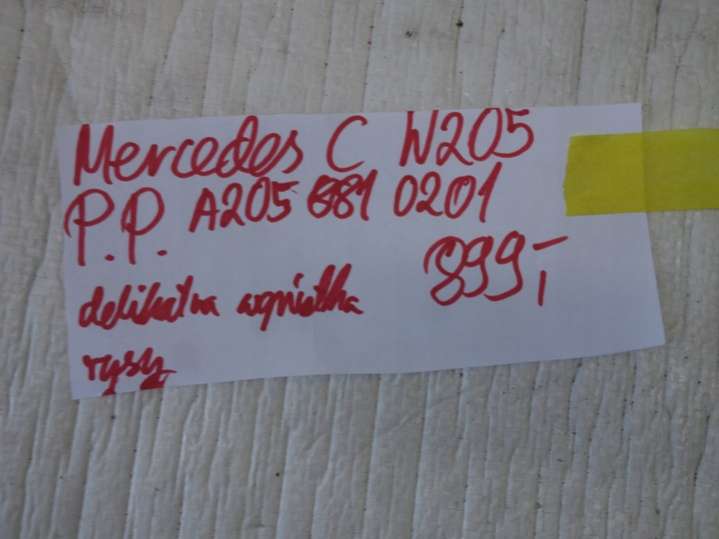 Mercedes C W205
P.P. A205 881 0201
899,-
delikatna wgniotka
rysy